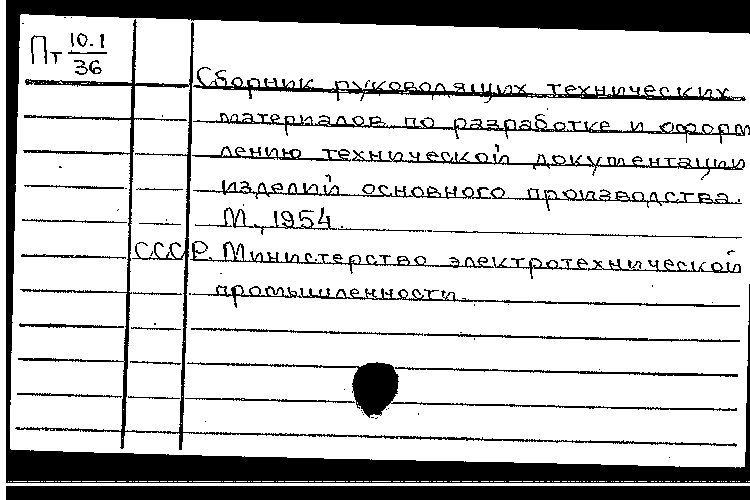 Пт 10.1
36
Сборник руководящих технических
материалов по разработке и оформ
лению технической документации
изделий основного производства.
М., 1954.
СССР. Министерство электротехнической
промышленности.